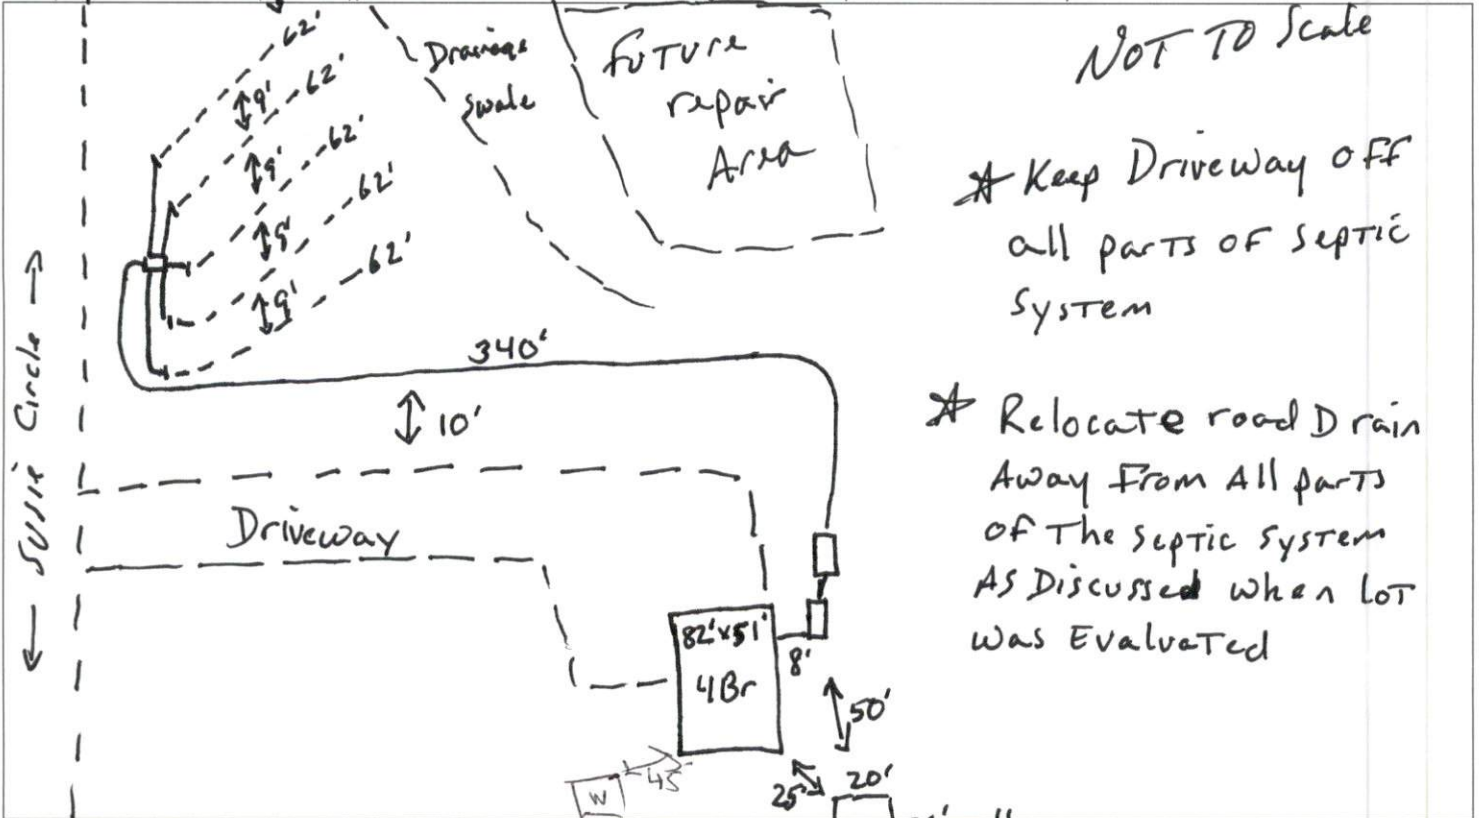 NOT TO Scale
62'
9'
62'
9'
62'
9'
62'
9'
62'
Drainage
Swale
Future
repair
Area
* Keep Driveway OFF
all parts OF Septic
System
340'
10'
* Relocate road Drain
Away From All parts
OF The Septic System
AS Discussed when LOT
was Evaluated
Driveway
82'x51'
4Br
8'
50'
45'
W
25'
20'
← Sussie Circle →